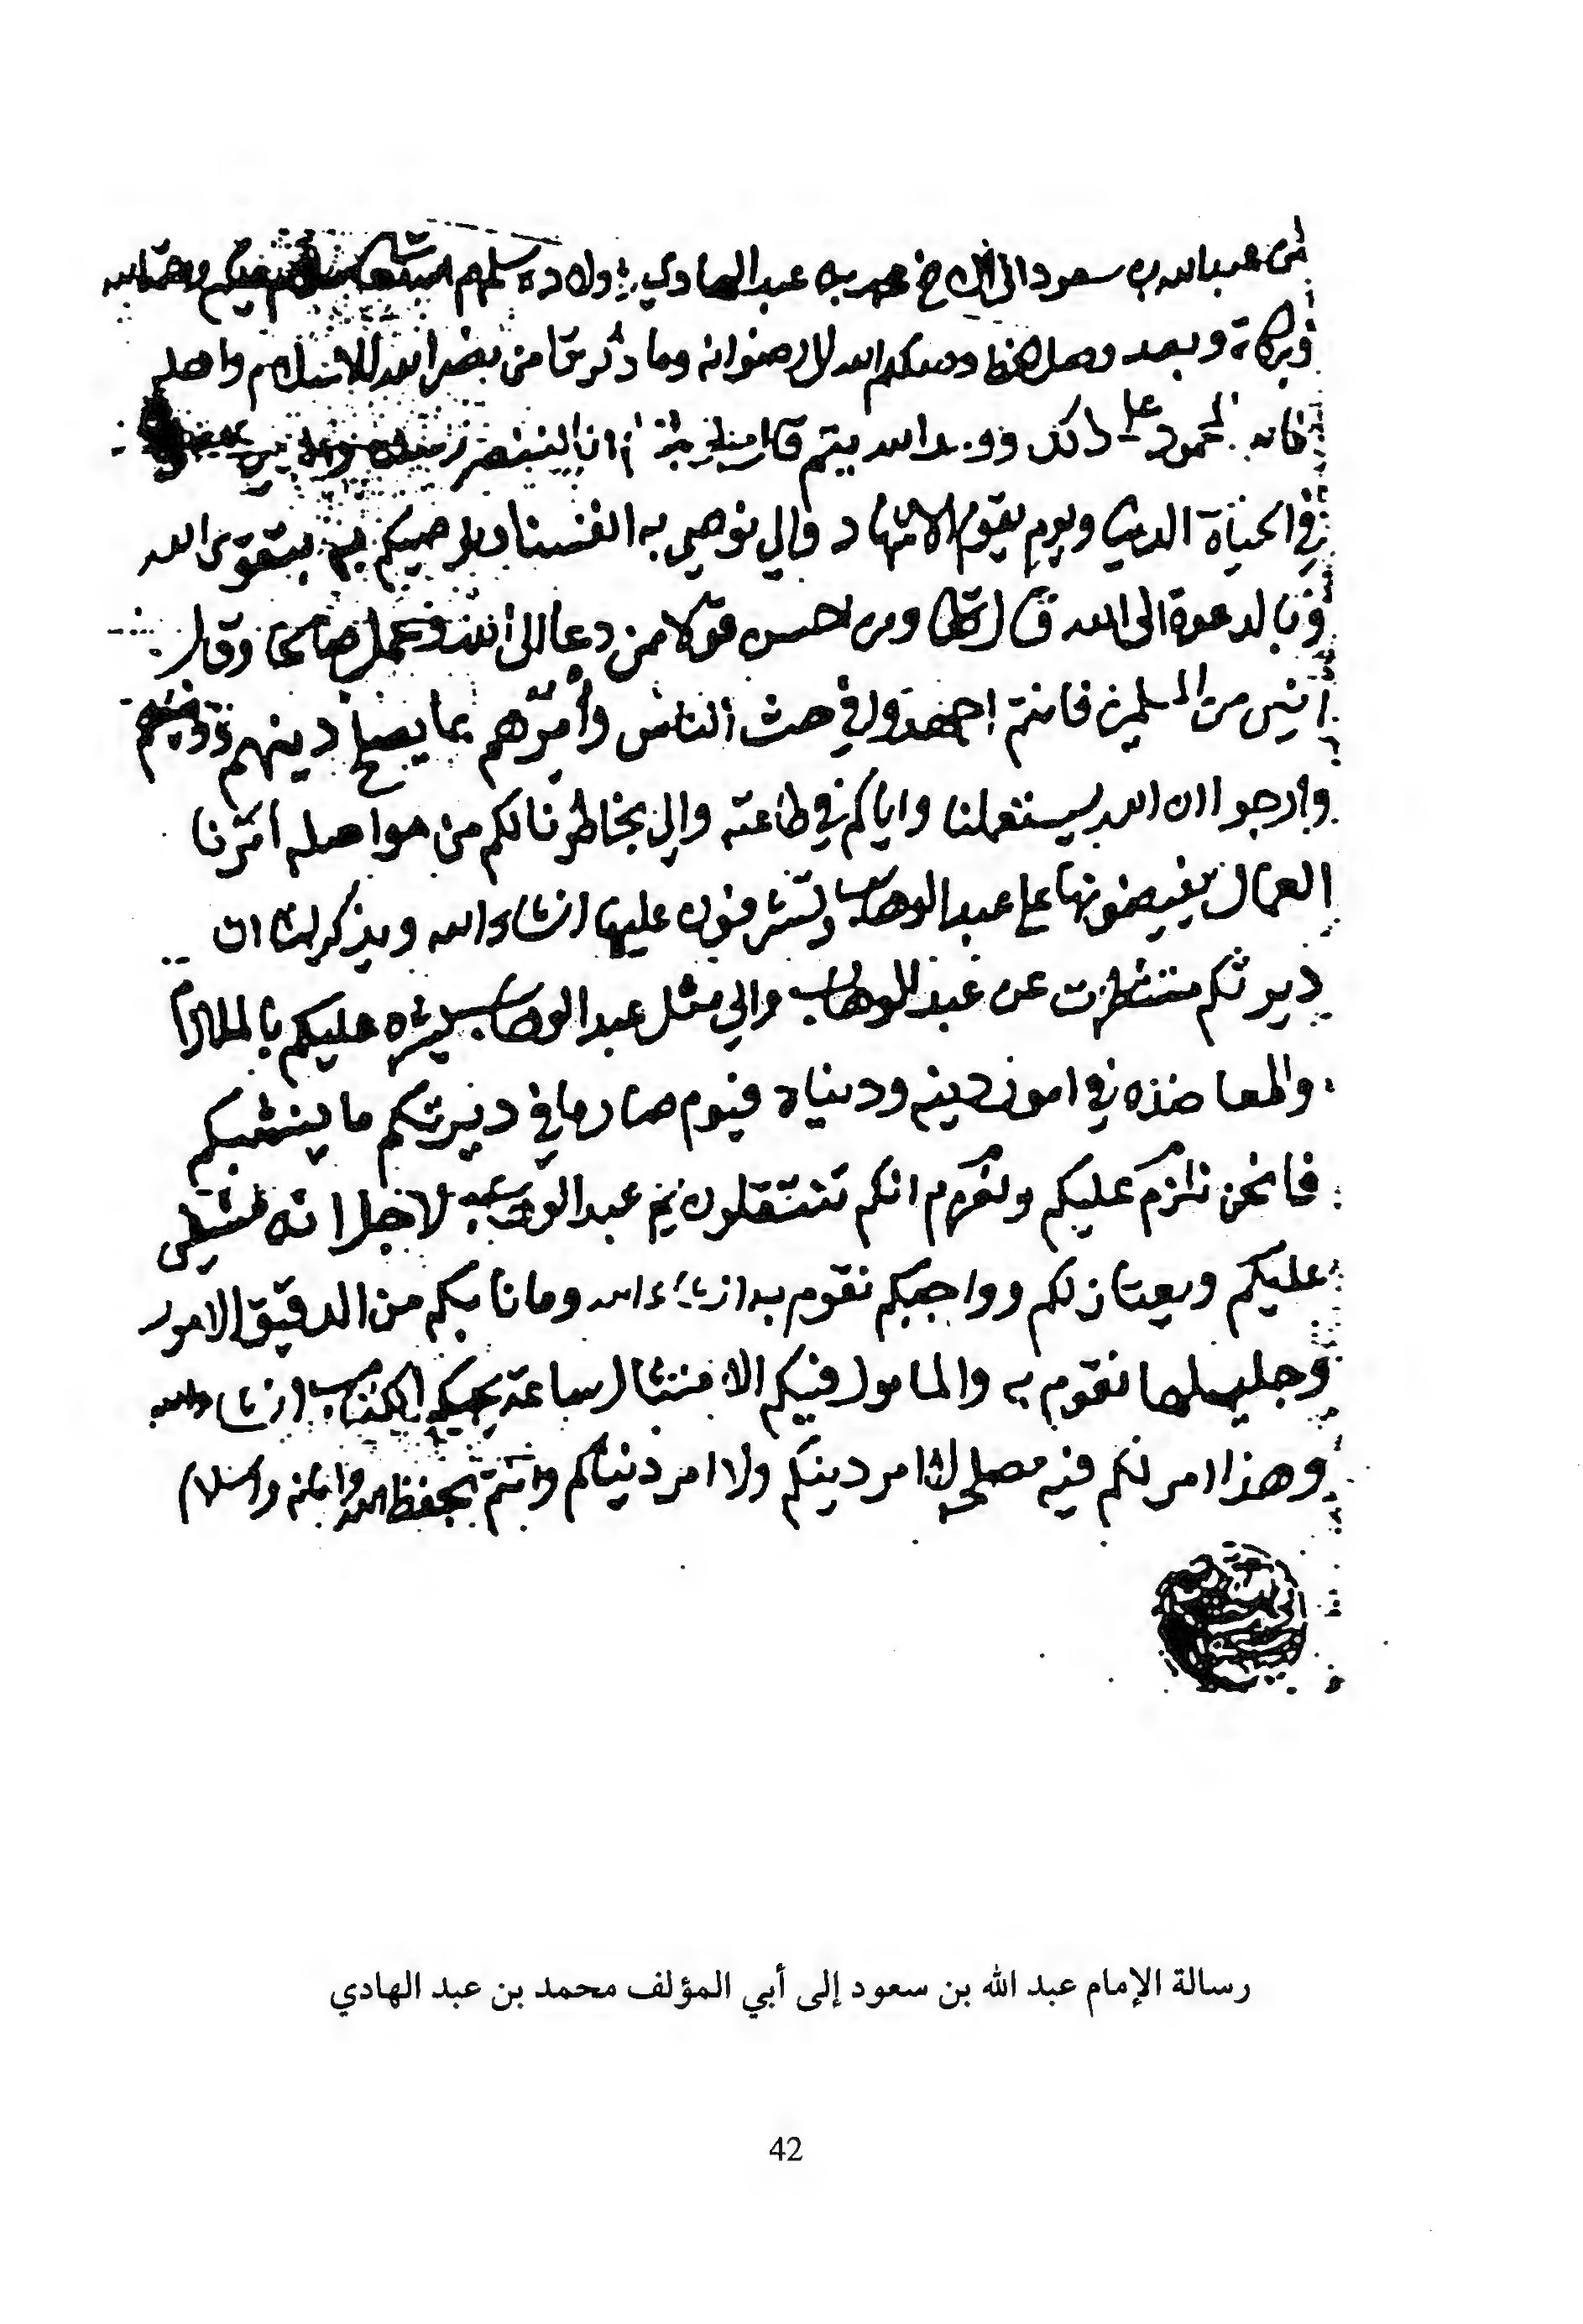 من عبد الله بن سعود الى الاخ محمد بن عبد الهادي واولاده سلمهم الله سلام عليكم ورحمة الله
وبركاته وبعد وصل الخط وصلكم الله لارضوانه وما ذكرتوا من نصر الله للاسلام واهله
فالله المحمود على ذلك ووعد الله يتم قال انا لننصر رسلنا والذين
في الحياة الدنيا ويوم يقوم الاشهاد والي نوصي به انفسنا ونوصيكم به بتقوى الله
وبالدعوة الى الله قال تعالى ومن احسن قولا ممن دعا الى الله وعمل صالحا وقال
انني من المسلمين فانتم اجهدوا في حث الناس وامرهم بما يصلح دينهم
وارجوا ان الله يستعملنا واياكم في طاعته والي بخاطرنا لكم من مواصله امرنا
العمال يفيضونها على عبد الوهاب وتشرفون عليها انشاء الله ويذكر لنا ان
ديرتكم عن عبد الوهاب والي مثل عبد الوهاب عليكم بالملازم
والمعاضده في امور دينه ودنياه فيوم صار ما في ديرتكم ما ينشبكم
فانحن نلزم عليكم ونعزم انكم تنتقلون يم عبد الوهاب لاجل انه
عليكم ويعتاز لكم وواجبكم نقوم به انشاء الله وما نابكم من الدقيق الامور
وجليلها نقوم به والمامول فيكم الامتثال ساعة يجيكم الكتاب انشاء الله
وهذا امر لكم فيه مصلحة لامر دينكم ولا امر دنياكم وانتم بحفظ الله وامانه والسلام
رسالة الإمام عبد الله بن سعود إلى أبي المؤلف محمد بن عبد الهادي
42